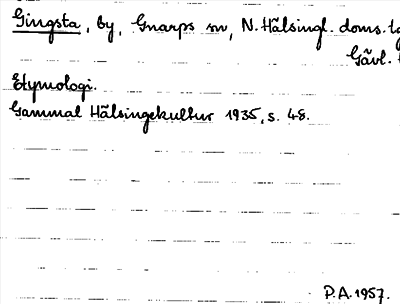 Gingsta, by, Gnarps sn, N. Hälsingl. doms.
Gävl.
Etymologi.
Gammal Hälsingekultur 1935, s. 48.
P.A. 1957.